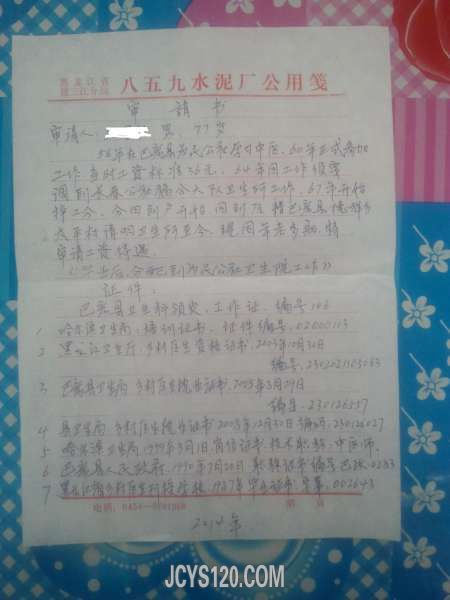 黑龙江省
建三江分局 八五九水泥厂公用笺
申請书
申请人: 男 77岁
58年在巴彦县为民公社学习中医, 60年正式参加
工作 当时工资标准36元. 64年因工作须要
调到长春公社 大队卫生所工作, 67年开始
挣工分, 分田到户开始, 回到 巴彦县
太平村 卫生所至今, 现因年老多病, 特
申请工资待遇.
(学业后, 分配到为民公社卫生院工作)
证件:
巴彦县卫生科颁发, 工作证, 编号103
1 哈尔滨卫生局, 培训证书. 证件编号, 02000113
2 黑龙江卫生厅, 乡村医生资格证书, 2003年10月30日
编号, 230202
3 巴彦县卫生局 乡村医生 证书. 2005年3月29日
编号: 230126557
4 县卫生局 乡村医生 证书 2003年12月30日 编号, 230126027
5 哈尔滨卫生局, 1999年3月1日, 岗位证书 技术职称, 中医师.
6 巴彦县人民政府, 1990年7月20日 职称证书 编号 0233
7 黑龙江省乡村医生 学校, 1987年毕业证书: 002643
电话: 0454- 第 页
2014年
JCYS120.COM